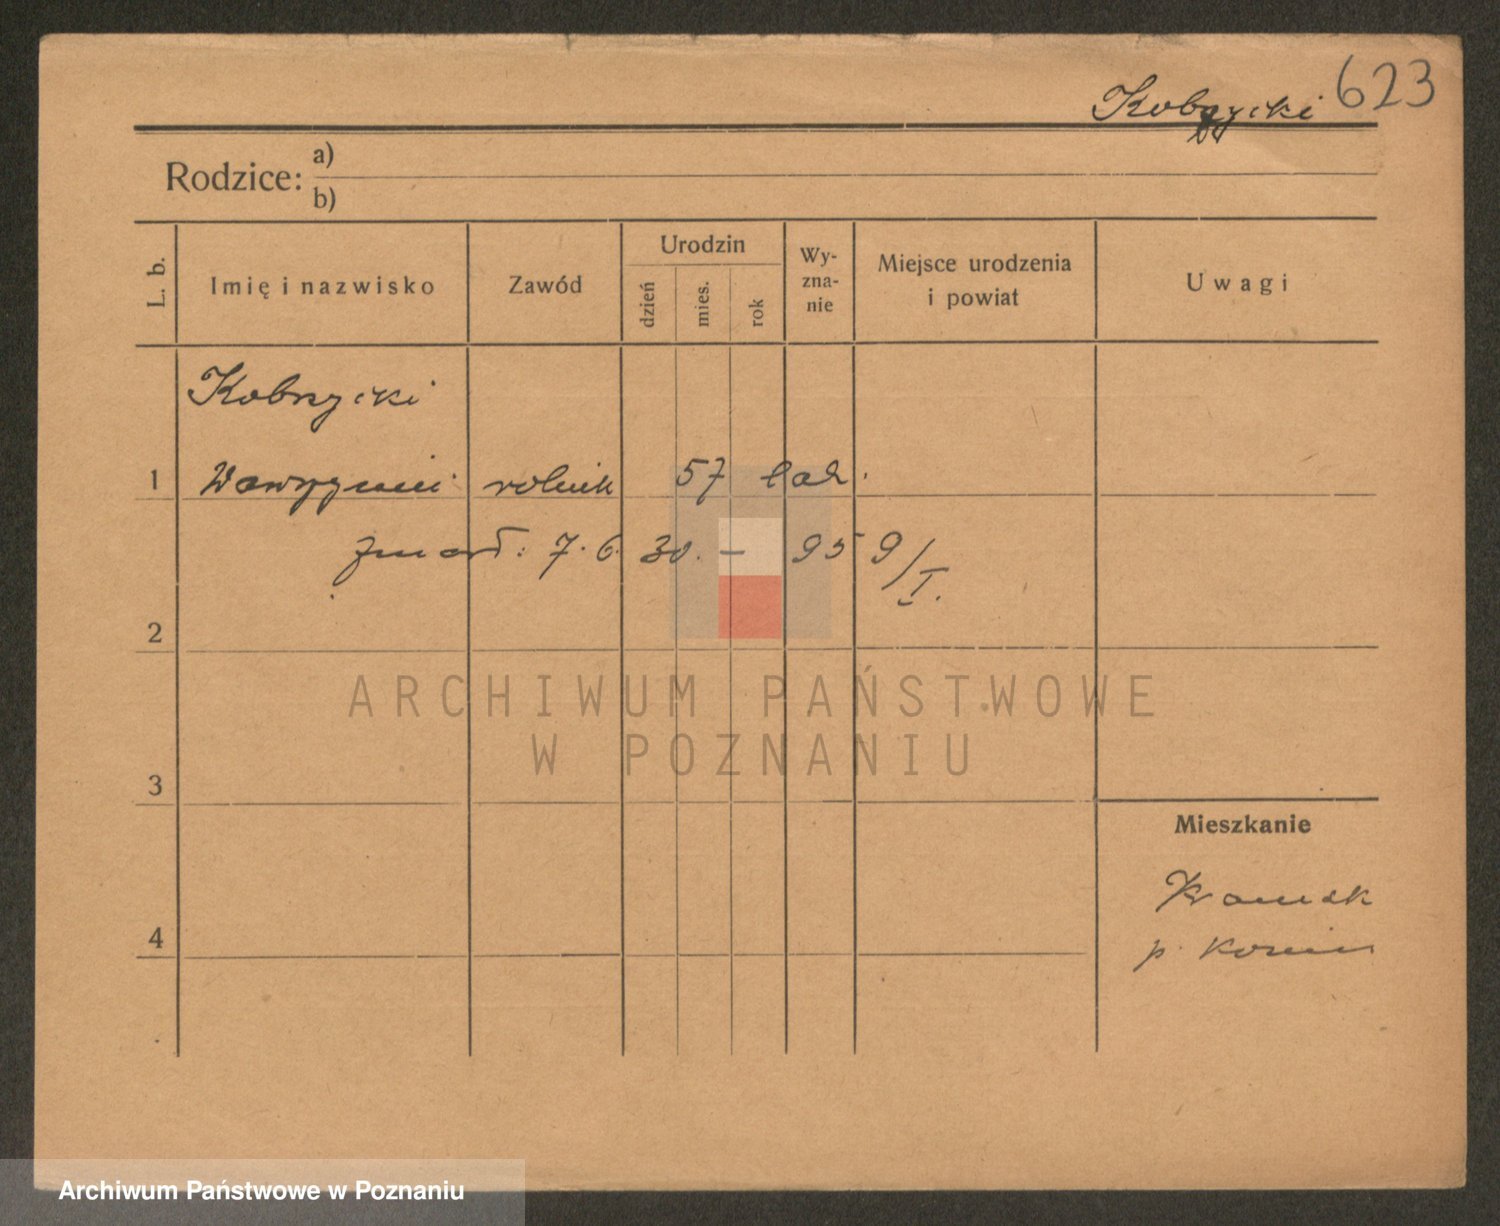 623
Kobrzycki
Rodzice: a)
b)
L. b.
Imię i nazwisko
Zawód
Urodzin
dzień
mies.
rok
Wy-
zna-
nie
Miejsce urodzenia
i powiat
Uwagi
Kobrzycki
1 Wawrzyniec rolnik 57 lat.
zmarł: 7. 6. 30. – 95 9/I.
2
ARCHIWUM PAŃSTWOWE
W POZNANIU
3
Mieszkanie
4
p.
Archiwum Państwowe w Poznaniu